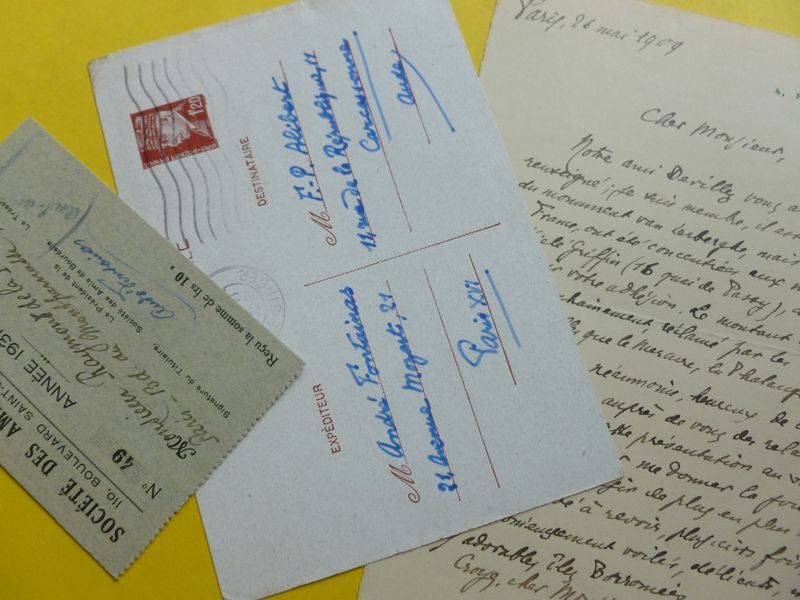 SOCIÉTÉ DES AM
110, BOULEVARD SAINT-
Nº 49 ANNÉE 193
Monsieur Raymond de la
Paris - Bd du Montparnasse
Signature du Titulaire,
Le Président de la
Société des Amis de Bourdelle,
Le Trésor
Reçu la somme de frs 10.
1F20
DESTINATAIRE
M F.-P. Alibert
11, rue de la République, 11
Carcassonne
Aude
EXPÉDITEUR
M André Fontainas
21, Avenue Mozart, 21
Paris XVI
Paris, 26 mai 1909
Cher Monsieur,
Notre ami Devilley vous a
renseigné; je suis membre, il est
du monument van Lerberghe, mais
France, ont été concentrées, aux m
Griffin (16 quai de Passy),
votre adhésion. Le montant
chainement réclamé par les
que le Mercure, la Phalange
néanmoins, heureux de
auprès de vous des rela
présentation au
me donner la
fin de plus en plus
à revoir, plusieurs fois
voilés, délicats,
adorables Iles Borromées
Croyez, cher M